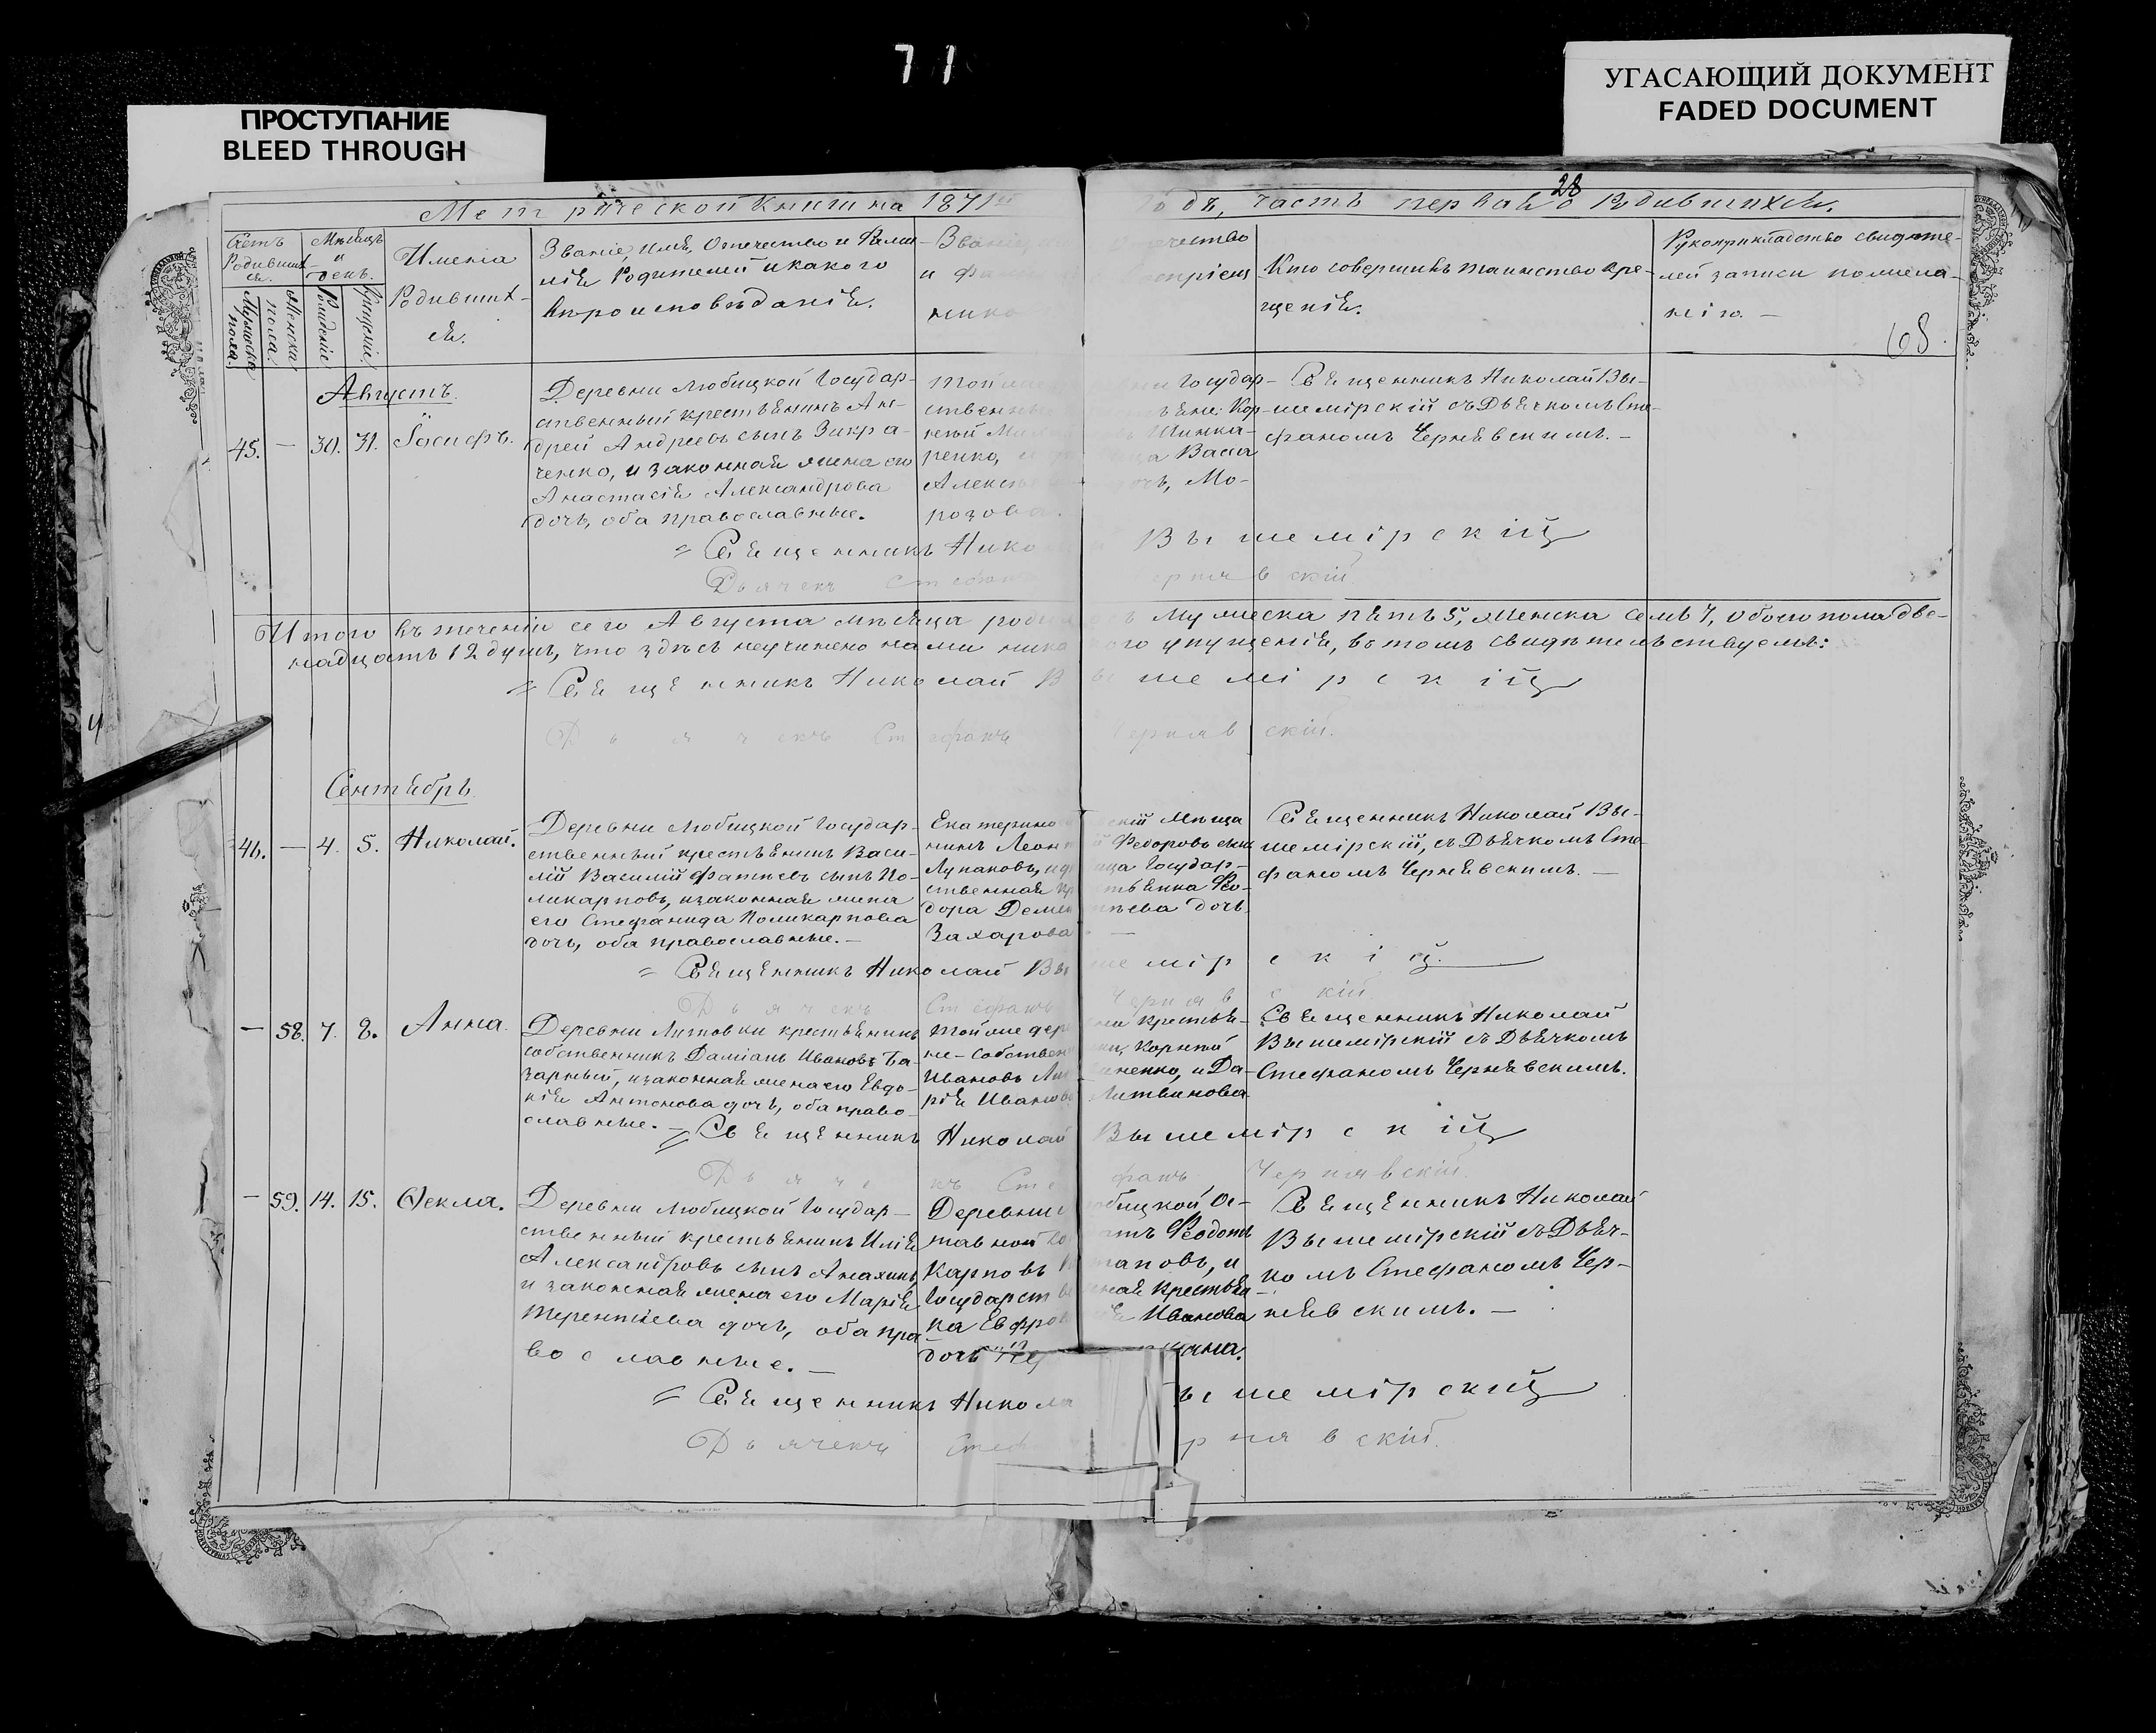 71
ПРОСТУПАНИЕ
BLEED THROUGH
УГАСАЮЩИЙ ДОКУМЕНТ
FADED DOCUMENT
28
Метрической книги на 1871й
Годъ, часть первая о Родившихся.
Счетъ Родившихся.
Мужеска пола.
Женска пола.
Мѣсяцъ и день.
Рожденіе.
Крещеніе.
Имена
Родивших-
ся.
Званіе, имя, Отечество и Фами-
лія Родителей и какого
вѣроисповѣданія.
Званіе
отчество
и фа
воспріем
нико
Кто совершилъ таинство кре-
щенія.
Рукоприкладство свидѣте-
лей записи по жела-
нію. —
68.
Августъ.
45. — 30. 31. Іосифъ.
Деревни Любицкой Государ-
ственный крестьянинъ Ан-
дрей Андреевъ сынъ Зикра-
ченко, и законная жена его
Анастасія Александрова
дочь, оба православные.
Той же
ни Государ-
ственный
янинъ Кор-
ній
Шинка-
ренко,
Васса
Алексѣева
дочь, Мо-
розова.
Священникъ Николай Вы-
шемірскій съ Дьячкомъ Сте-
фаномъ Чернявскимъ. —
= Священникъ Николай Вышемірскій
Дьячекъ Стефанъ Чернявскій.
Итого въ теченіи сего Августа мѣсяца родилось Мужеска пять 5, Женска семь 7, обоего пола две-
надцать 12 душъ, что здѣсь неучинено нами никакого упущенія, въ томъ свидѣтельствуемъ:
= Священникъ Николай Вышемірскій
Дьячекъ Стефанъ Чернявскій.
Сентябрь
46. — 4. 5. Николай.
Деревни Любицкой Государ-
ственный крестьянинъ Васи-
лій Василій Фатѣевъ сынъ По-
ликарповъ, и законная жена
его Стефанида Поликарпова
дочь, оба православные. —
Екатеринославскій Мѣща
нинъ Леонтій Федоровъ сынъ
Лупаковъ, и дѣвица Государ-
ственная крестьянка Фео-
дора Дементьева дочь
Захарова —
Священникъ Николай Вы-
шемірскій, съ Дьячкомъ Сте-
фаномъ Чернявскимъ. —
= Священникъ Николай Вышемірскій.
Дьячекъ Стефанъ Чернявскій.
— 58. 7. 8. Анна.
Деревни Литовки крестьянинъ
собственникъ Даміанъ Ивановъ Ба-
зарный, и законная жена его Евдо-
кія Антонова дочь, оба право-
славные. —
Той же деревни крестья-
не-собственники, Корній
Ивановъ Литвиненко, и Да-
рія Иванова Литвинова
Священникъ Николай
Вышемірскій съ Дьячкомъ
Стефаномъ Чернявскимъ.
= Священникъ Николай Вышемірскій
Дьячекъ Стефанъ Чернявскій.
— 59. 14. 15. Ѳекла.
Деревни Любицкой Государ-
ственный крестьянинъ Илія
Александровъ сынъ Анахинъ,
и законная жена его Марія
Терентіева дочь, оба пра-
вославные. —
Деревни Любицкой От-
тавной Солдатъ Феодотъ
Карповъ Потаповъ, и
Государственная Крестьян-
ка Евфросинія Иванова
дочь
Священникъ Николай
Вышемірскій съ Дьяч-
комъ Стефаномъ Чер-
нявскимъ. —
= Священникъ Николай Вышемірскій
Дьячекъ Стефанъ Чернявскій.